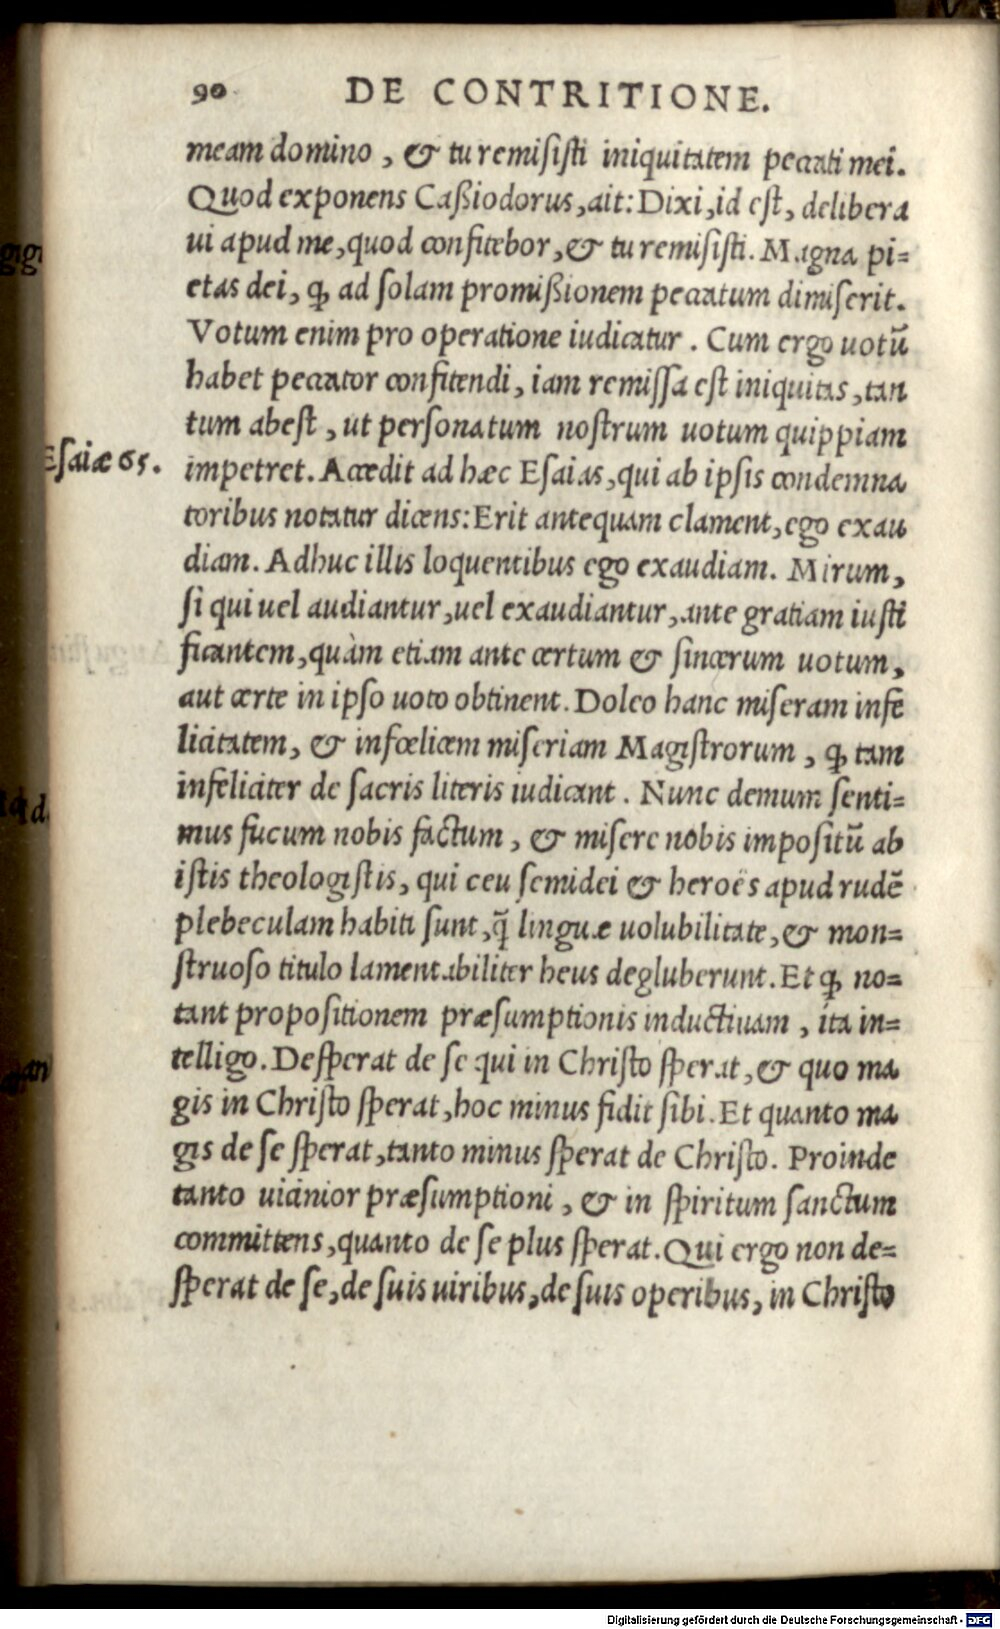 90 DE CONTRITIONE.
meam domino, & tu remisisti iniquitatem peccati mei.
Quod exponens Caßiodorus, ait: Dixi, id est, delibera
ui apud me, quod confitebor, & tu remisisti. Magna pi=
etas dei, ꝙ ad solam promißionem peccatum dimiserit.
Votum enim pro operatione iudicatur. Cum ergo uotū
habet peccator confitendi, iam remissa est iniquitas, tan
tum abest, ut personatum nostrum uotum quippiam
Esaiæ 65. impetret. Accedit ad hæc Esaias, qui ab ipsis condemna
toribus notatur dicens: Erit antequam clament, ego exau
diam. Adhuc illis loquentibus ego exaudiam. Mirum,
si qui uel audiantur, uel exaudiantur, ante gratiam iusti
ficantem, quàm etiam ante certum & sincerum uotum,
aut certe in ipso uoto obtinent. Doleo hanc miseram infe
licitatem, & infœlicem miseriam Magistrorum, ꝙ tam
infeliciter de sacris literis iudicant. Nunc demum senti=
mus fucum nobis factum, & misere nobis impositū ab
istis theologistis, qui ceu semidei & heroës apud rudē
plebeculam habiti sunt, q̃ linguæ uolubilitate, & mon=
struoso titulo lamentabiliter heus degluberunt. Et ꝙ no=
tant propositionem præsumptionis inductiuam, ita in=
telligo. Desperat de se qui in Christo sperat, & quo ma
gis in Christo sperat, hoc minus fidit sibi. Et quanto ma
gis de se sperat, tanto minus sperat de Christo. Proinde
tanto uicinior præsumptioni, & in spiritum sanctum
committens, quanto de se plus sperat. Qui ergo non de=
sperat de se, de suis uiribus, de suis operibus, in Christo
Digitalisierung gefördert durch die Deutsche Forschungsgemeinschaft - DFG